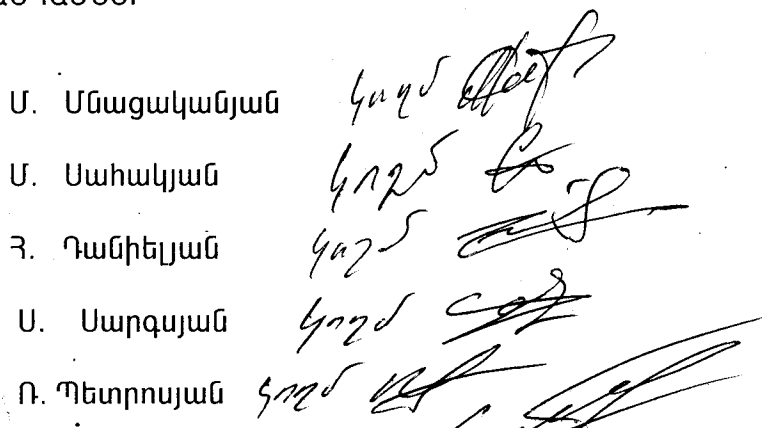 Մ. Մնացականյան կողմ
Մ. Սահակյան կողմ
Հ. Դանիելյան կողմ
Ս. Սարգսյան կողմ
Ռ. Պետրոսյան կողմ